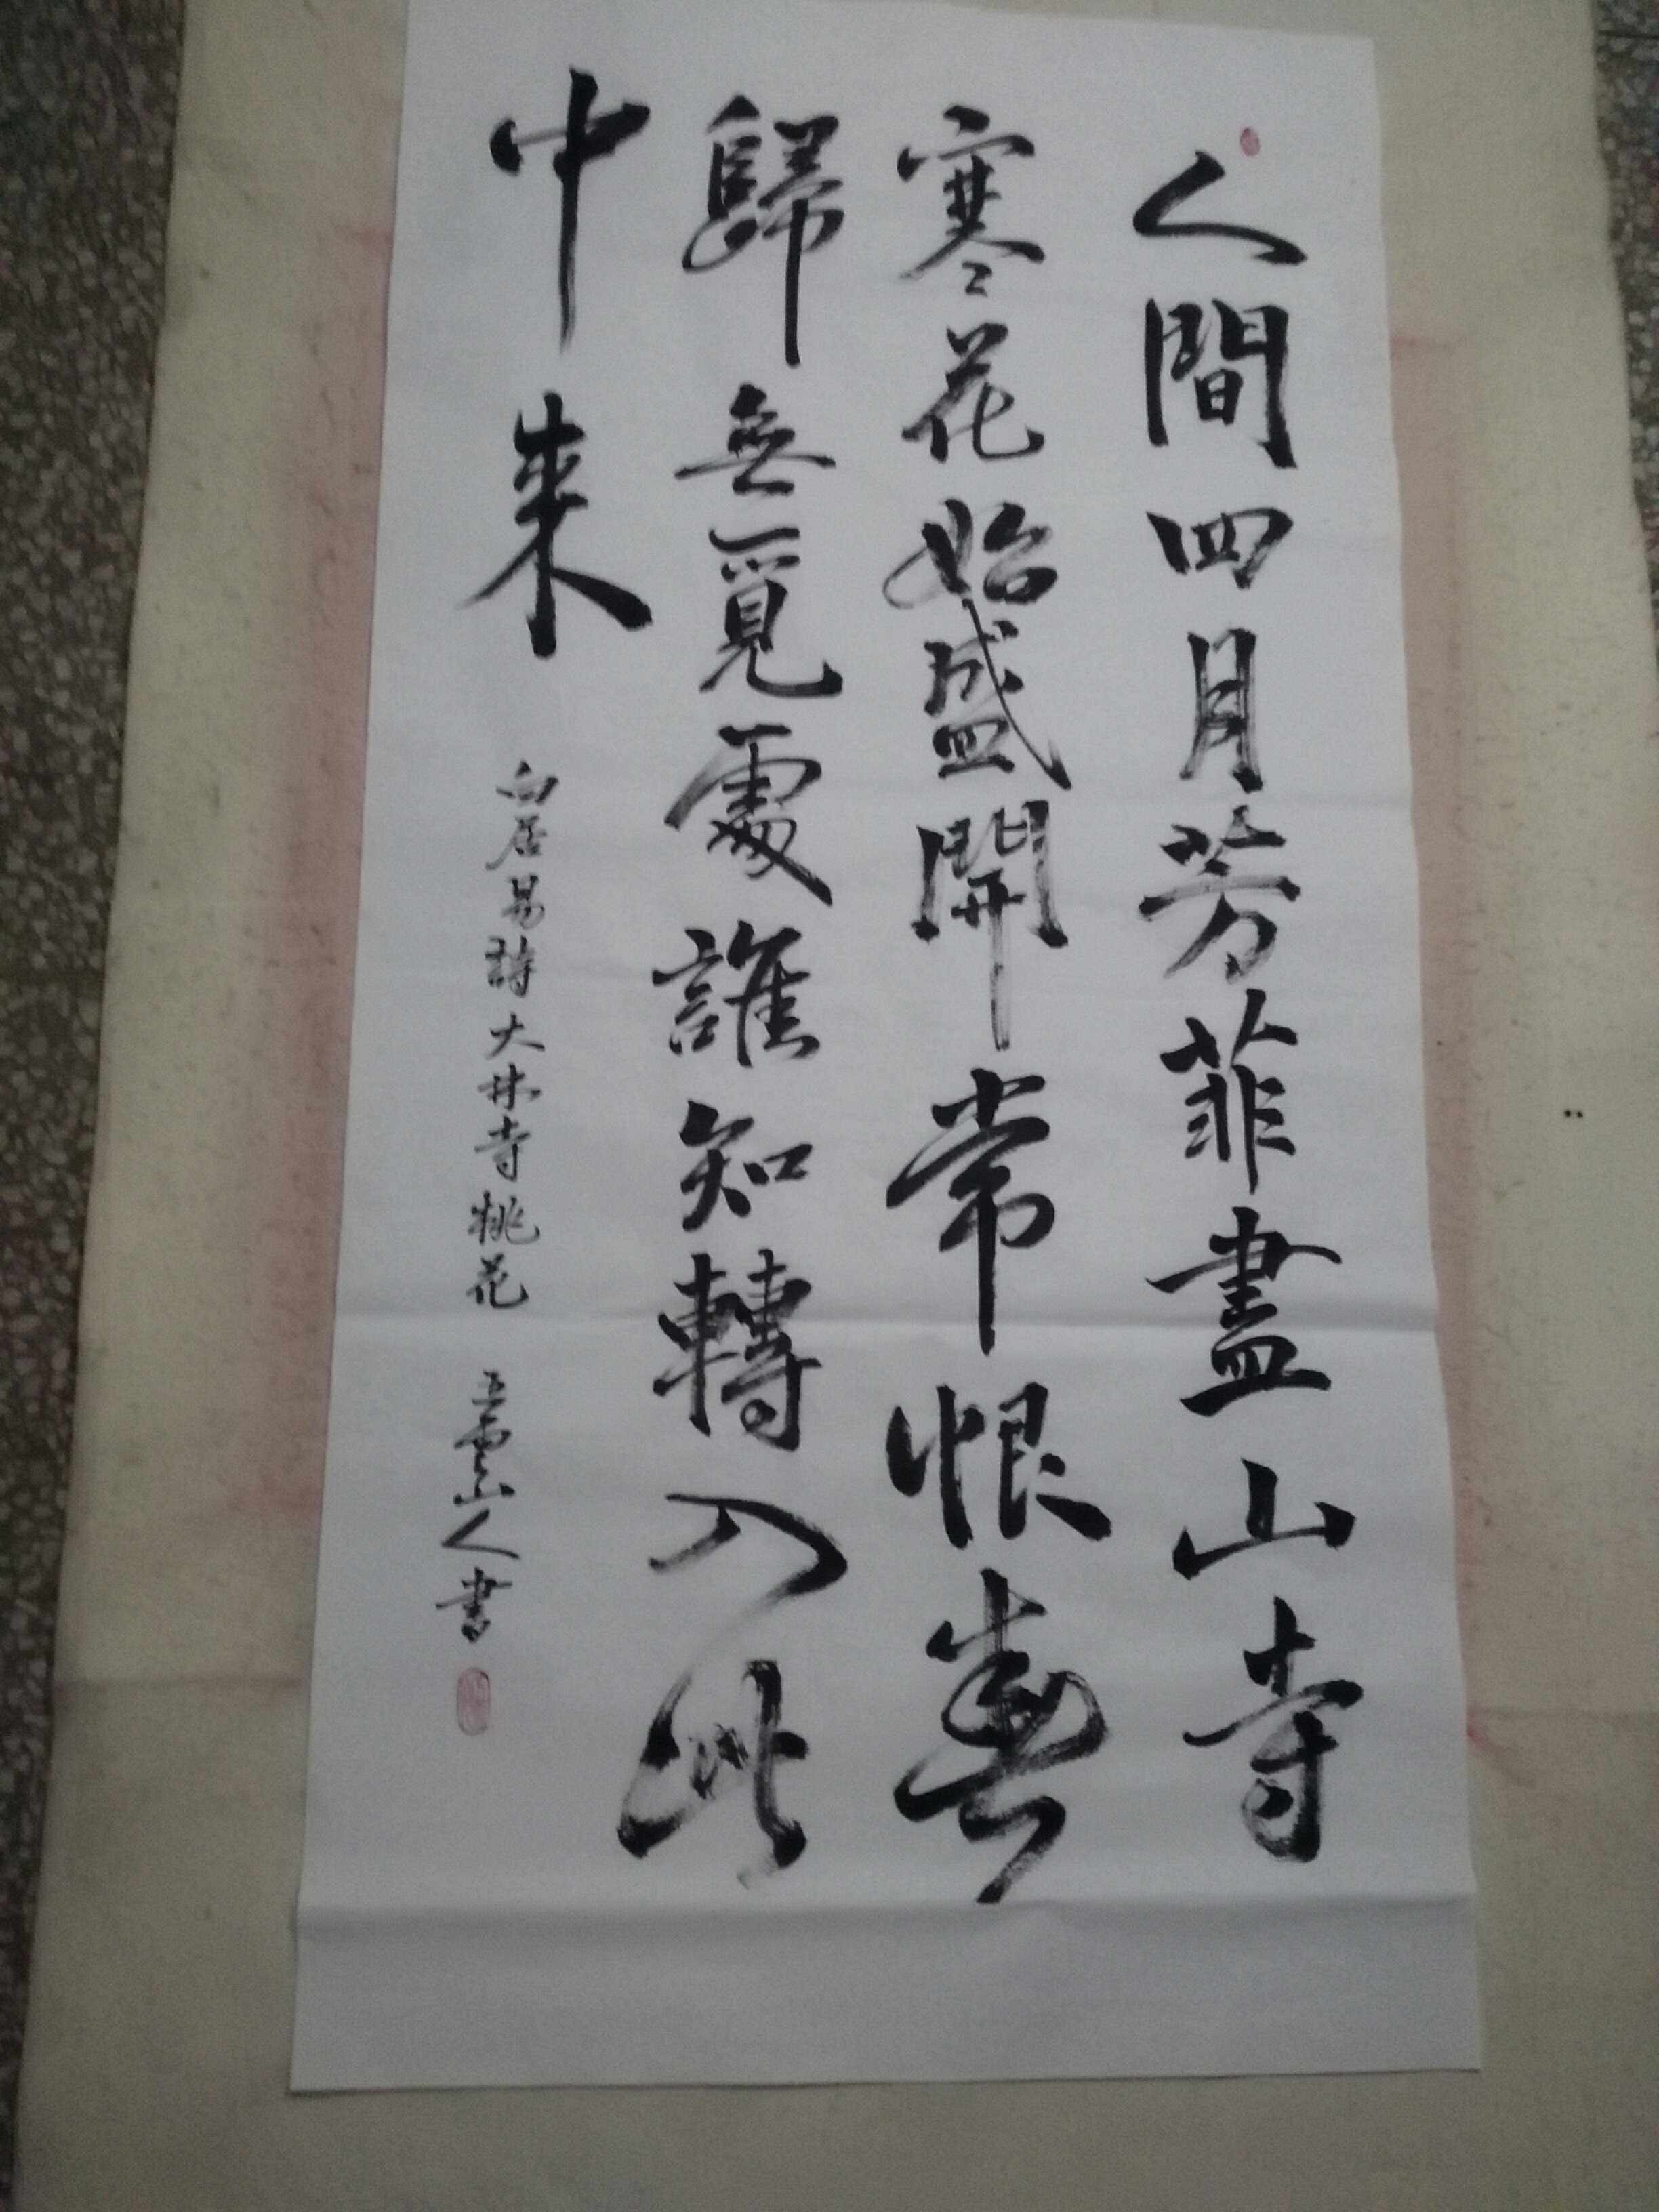 人間四月芳菲盡山寺
寒花始盛開常恨春
歸無覓處誰知轉入此
中来
白居易詩大林寺桃花
雲山人書